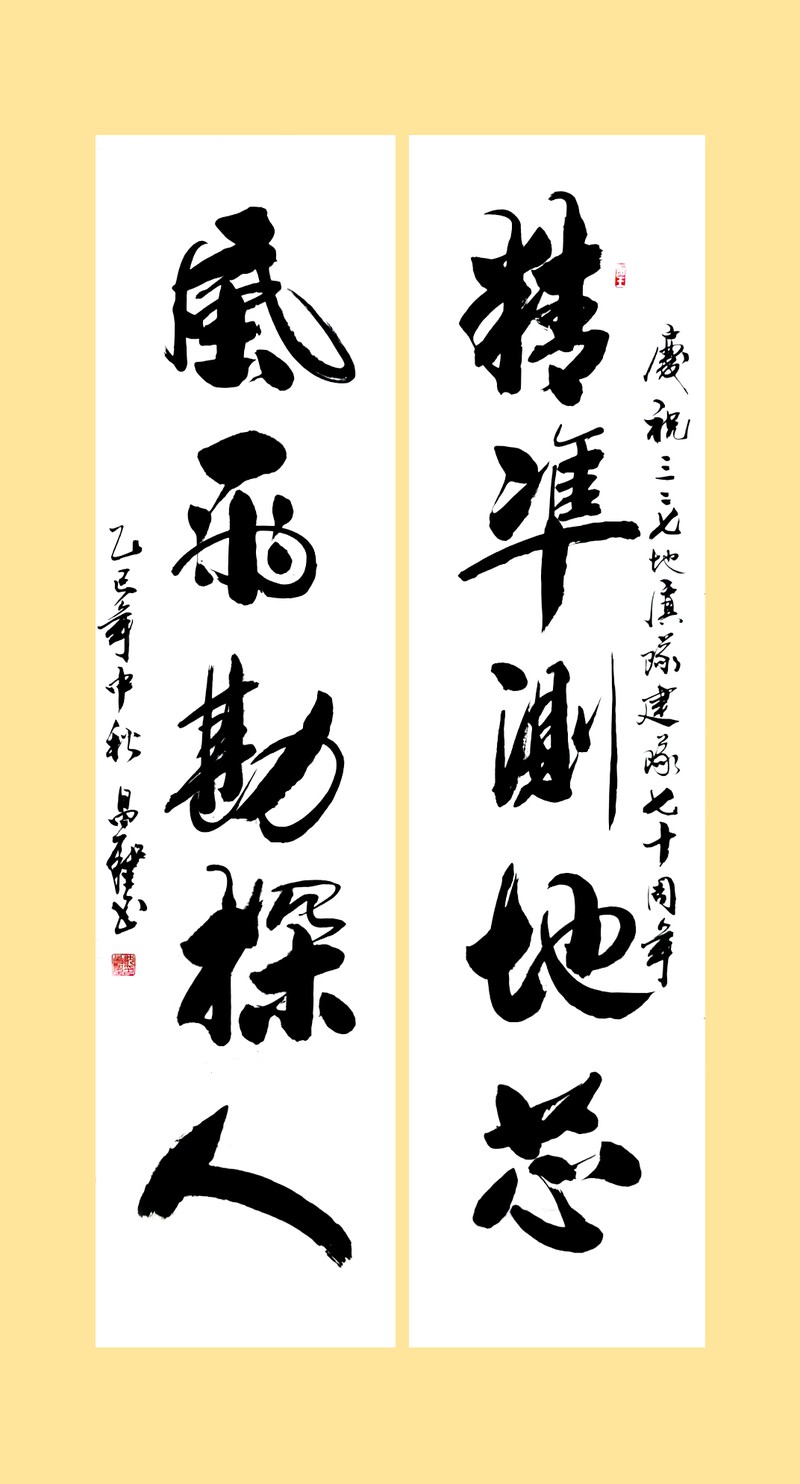 慶祝三二七地質隊建隊七十周年
精準測地芯
風雨勘探人
乙巳年中秋 昌 書